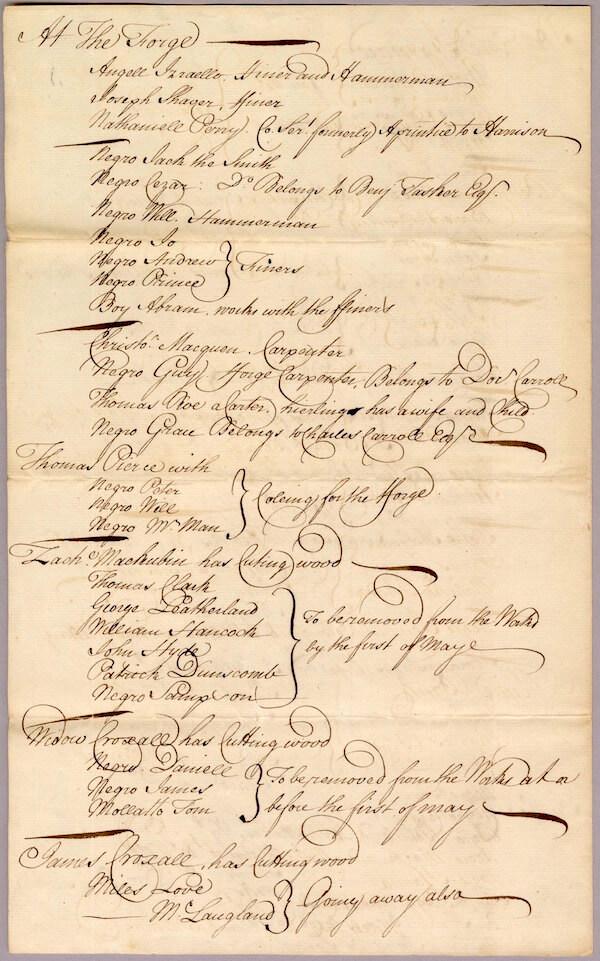 At The Forge
Angell Izraello. Finer and Hammerman
Joseph Shager, Finer
Nathaniell Perry. Co. Sert. formerly Aprintice to Harrison
Negro Jack the Smith
Negro Cezar: Do. Belongs to Benj. Tasker Esqr.
Negro Will. Hammerman
Negro Jo
Negro Andrew } Finers
Negro Prince
Boy Abram. works with the ffiners
Christor. Macquen Carpenter
Negro Guy Forge Carpenter, Belongs to Docr. Carroll
Thomas Roe a Carter, hierling has a wife and Child
Negro Grace Belongs to Charles Carroll Esqr.
Thomas Pierce with
Negro Peter
Negro Will } Coleing for the Forge
Negro Wr. Man
Zachr. Mackubin has Cuting wood
Thomas Clark
George Leatherland
William Hancock } To be removed from the Works
John Hyde by the first of Maye
Patrick Dunscomb
Negro Sampson
Widow Croxall has Cutting wood
Negro Daniell } To be removed from the Works at or
Negro James
Mollatto Tom before the first of may
James Croxall, has Cutting wood
Miles Love } Going away also
Mc.Laugland